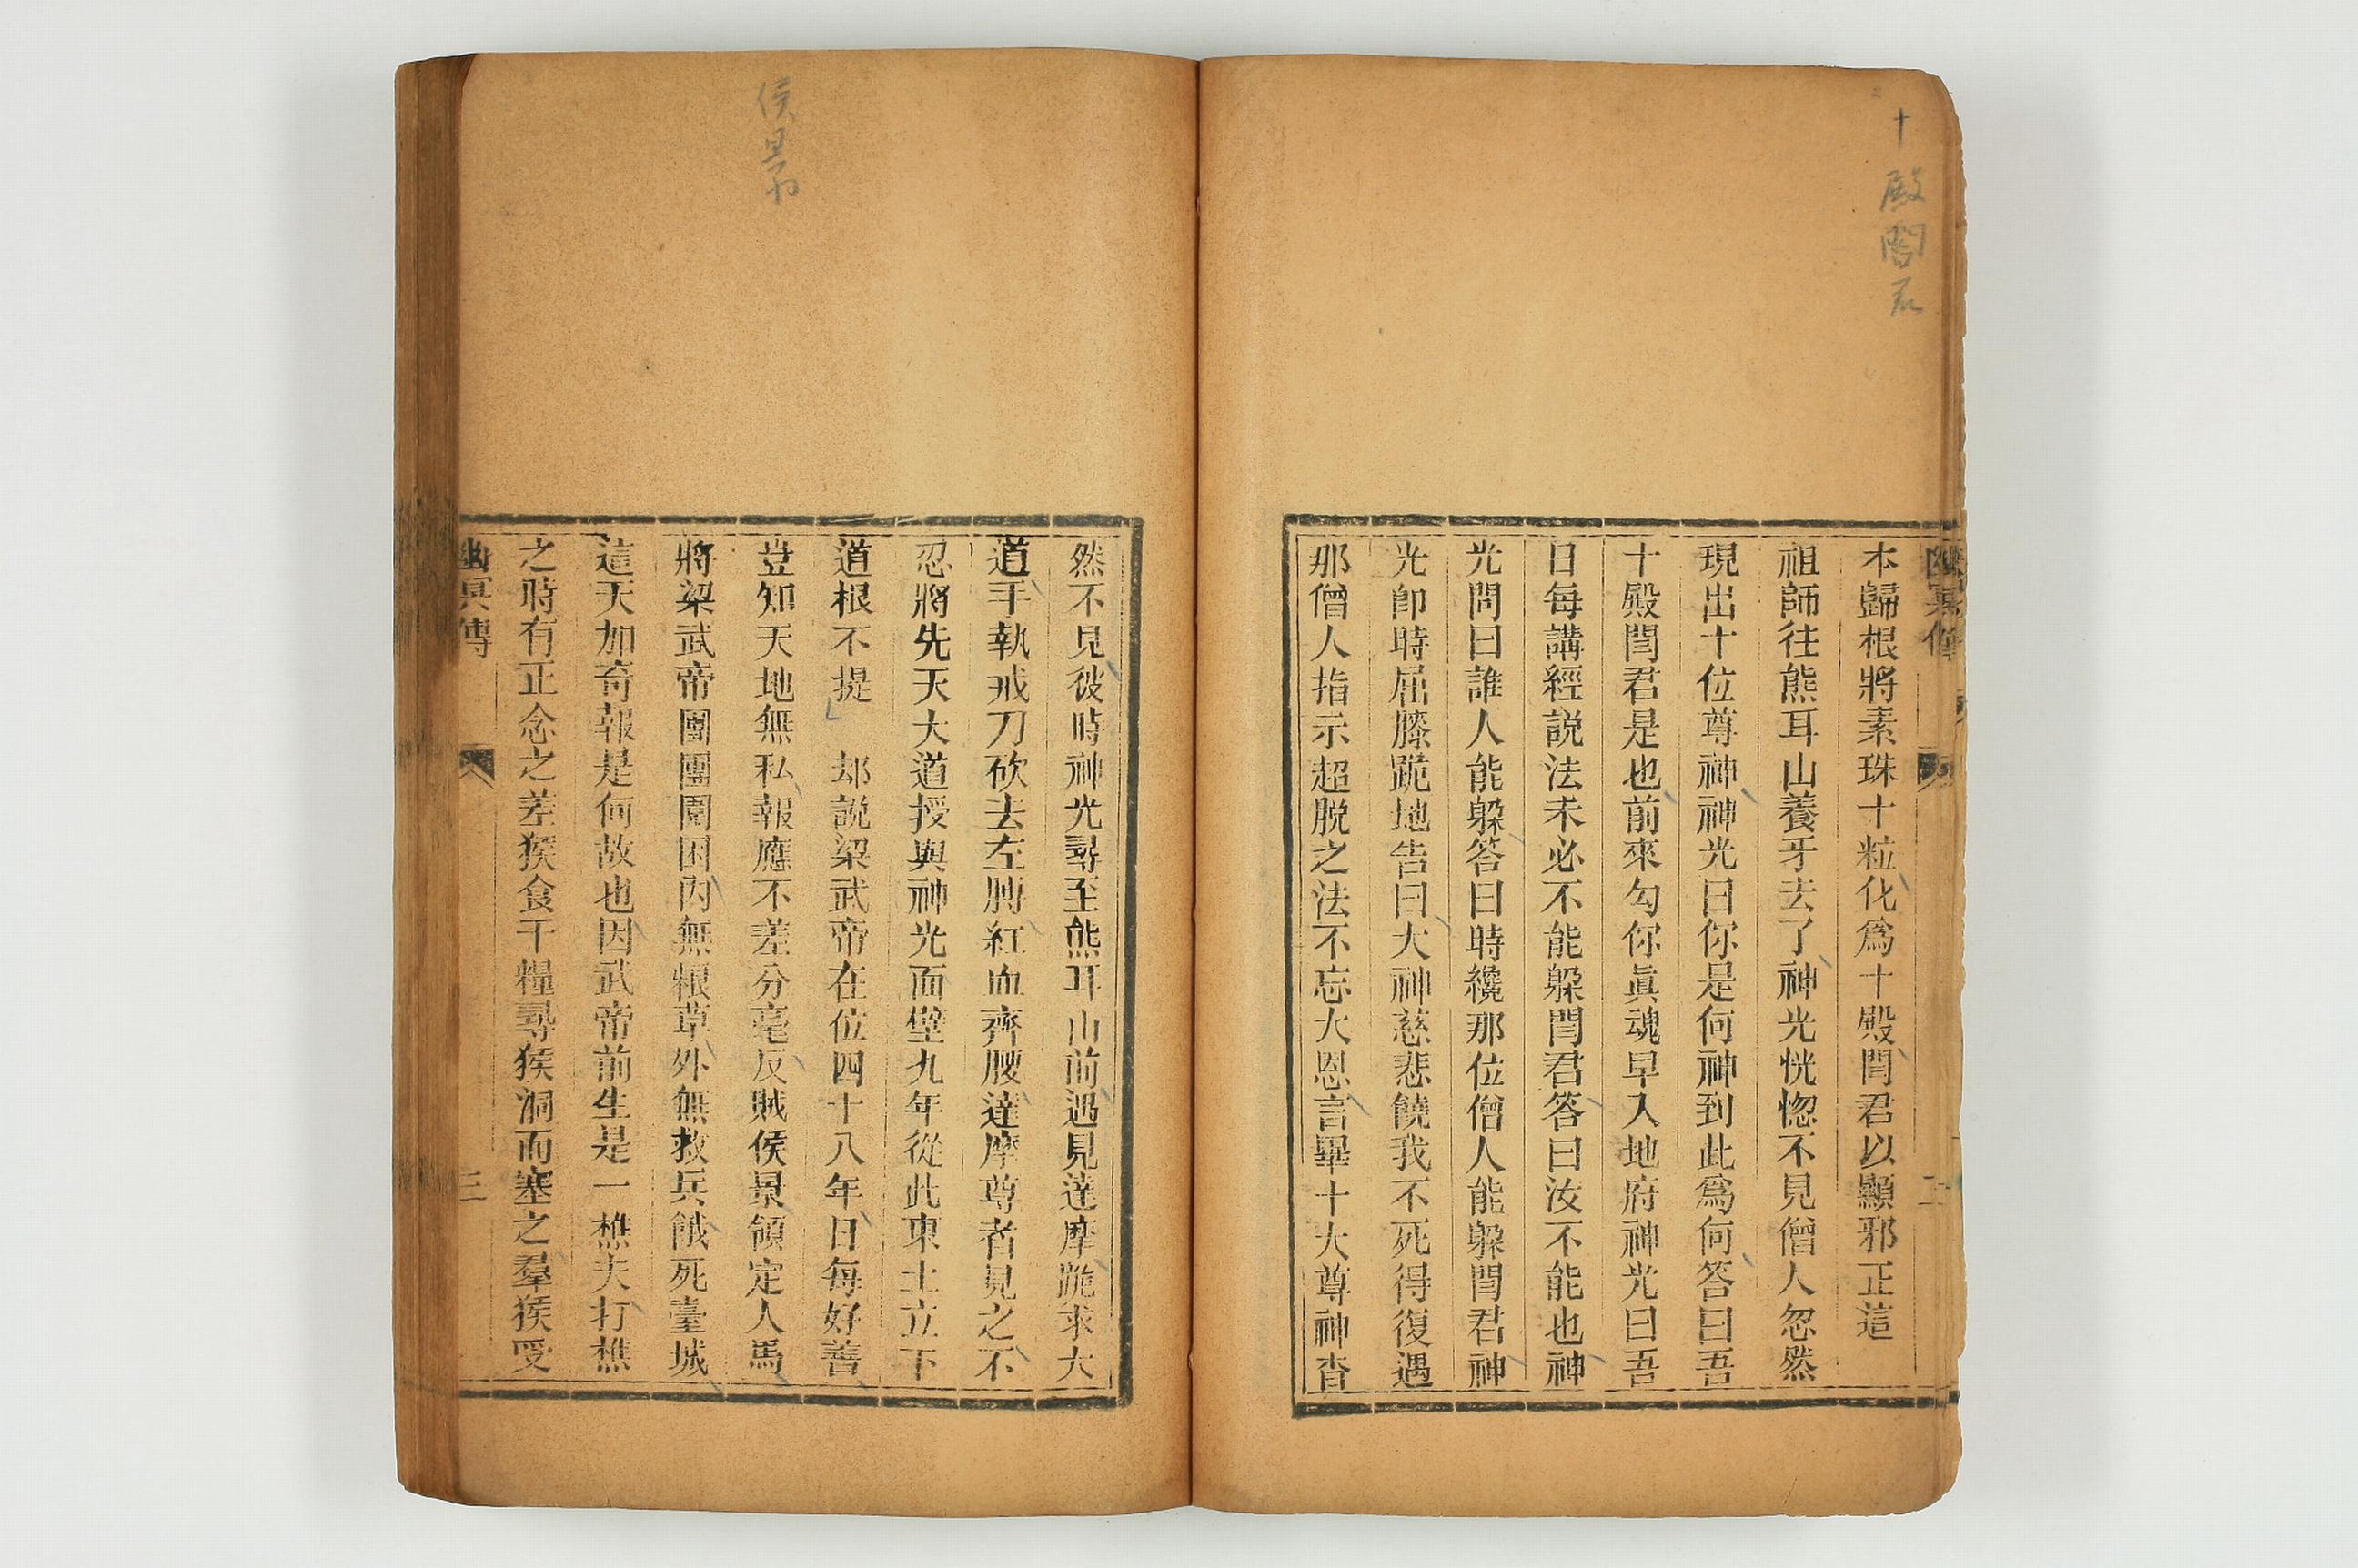 十殿閻君
幽冥傳
二
本歸根將素珠十粒化爲十殿閆君以顯邪正這
祖師往熊耳山養牙去了神光恍惚不見僧人忽然
現出十位尊神神光曰你是何神到此爲何答曰吾
十殿閆君是也前來勾你眞魂早入地府神光曰吾
日每講經説法未必不能躲閆君答曰汝不能也神
光問曰誰人能躲答曰時纔那位僧人能躲閆君神
光卽時屈膝跪地告曰大神慈悲饒我不死得復遇
那僧人指示超脱之法不忘大恩言畢十大尊神杳
侯景
然不見彼時神光尋至熊耳山前遇見達摩跪求大
道手執戒刀砍去左膊紅血齊腰達摩尊者見之不
忍將先天大道授與神光面壁九年從此東土立下
道根不提　却説梁武帝在位四十八年日每好善
豈知天地無私報應不差分毫反賊侯景領定人馬
將梁武帝團團圍困內無粮草外無救兵餓死臺城
這天加奇報是何故也因武帝前生是一樵夫打樵
之時有正念之差猴食干糧尋猴洞而塞之羣猴受
幽冥傳
三